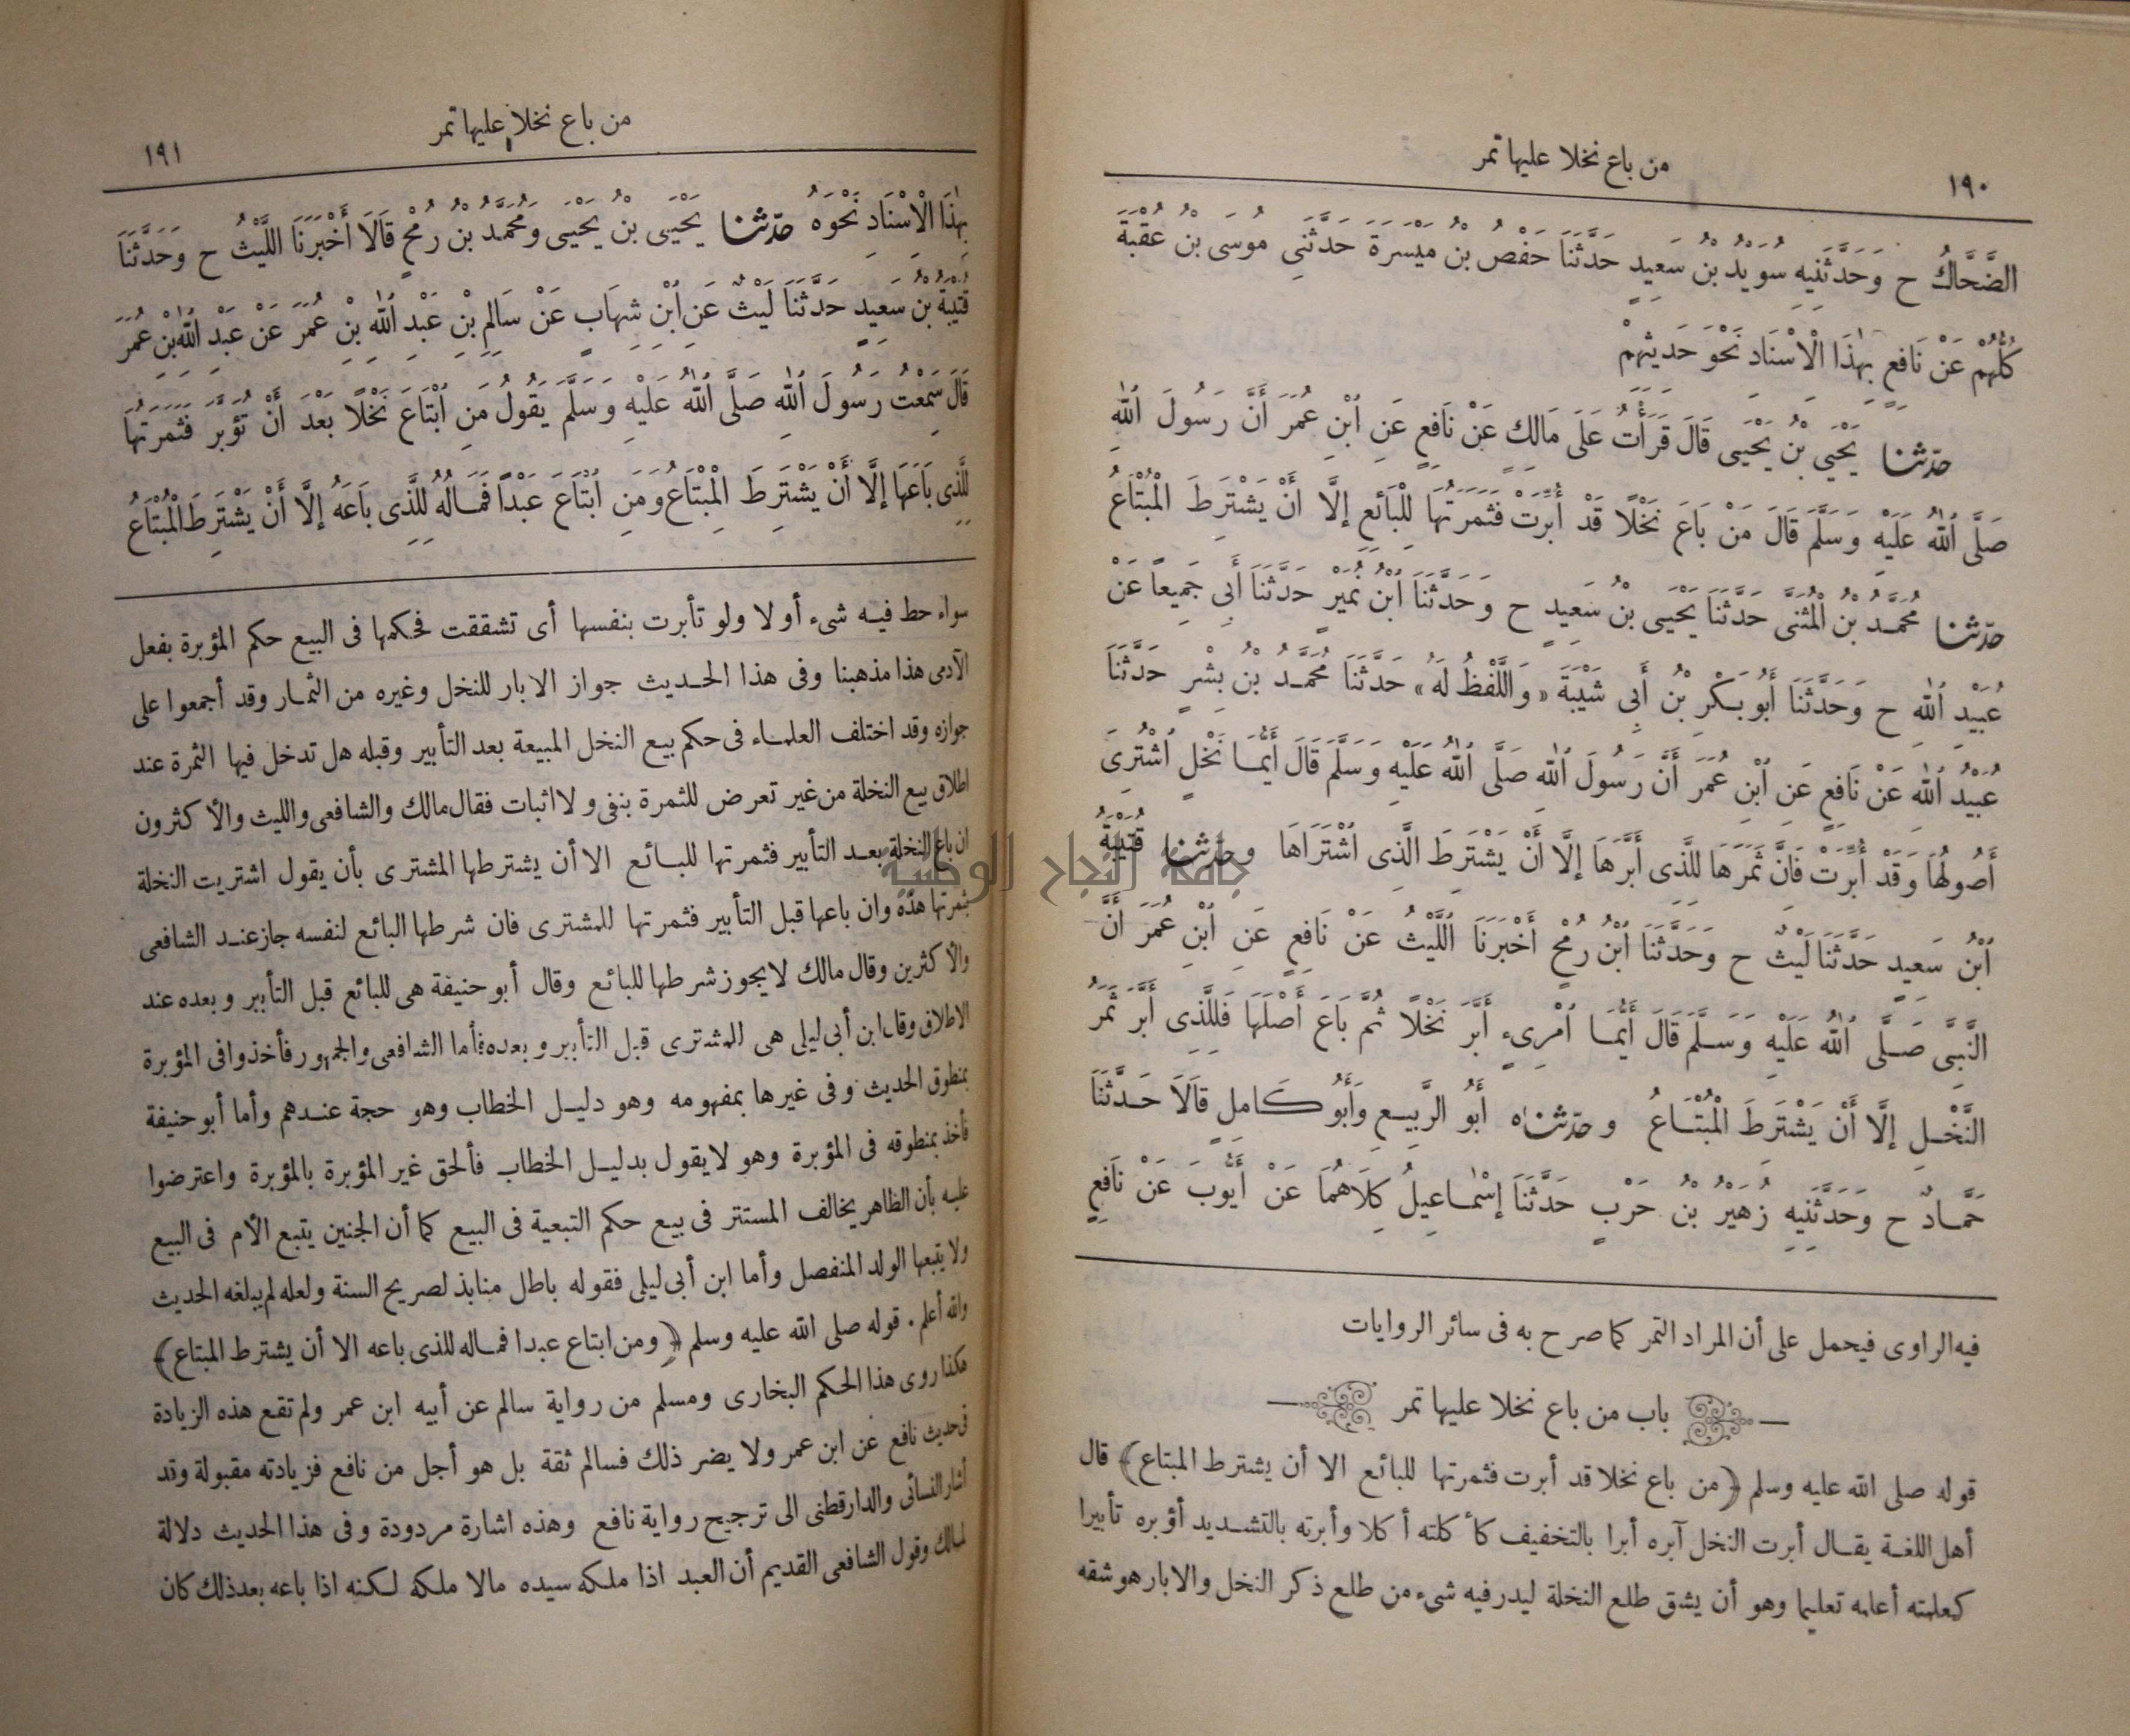 من باع نخلا عليها تمر
١٩٠
الضَّحَّاكُ ح وَحَدَّثَنِيهِ سُوَيْدُ بْنُ سَعِيدٍ حَدَّثَنَا حَفْصُ بْنُ مَيْسَرَةَ حَدَّثَنِي مُوسَى بْنُ عُقْبَةَ
كُلُّهُمْ عَنْ نَافِعٍ بِهٰذَا الْإِسْنَادِ نَحْوَ حَدِيثِهِمْ
حدّثنا يَحْيَى بْنُ يَحْيَى قَالَ قَرَأْتُ عَلَى مَالِكٍ عَنْ نَافِعٍ عَنِ ابْنِ عُمَرَ أَنَّ رَسُولَ اللهِ
صَلَّى اللهُ عَلَيْهِ وَسَلَّمَ قَالَ مَنْ بَاعَ نَخْلًا قَدْ أُبِّرَتْ فَثَمَرَتُهَا لِلْبَائِعِ إِلَّا أَنْ يَشْتَرِطَ الْمُبْتَاعُ
حدّثنا مُحَمَّدُ بْنُ الْمُثَنَّى حَدَّثَنَا يَحْيَى بْنُ سَعِيدٍ ح وَحَدَّثَنَا ابْنُ نُمَيْرٍ حَدَّثَنَا أَبِي جَمِيعاً عَنْ
عُبَيْدِ اللهِ ح وَحَدَّثَنَا أَبُو بَكْرِ بْنُ أَبِي شَيْبَةَ «وَاللَّفْظُ لَهُ» حَدَّثَنَا مُحَمَّدُ بْنُ بِشْرٍ حَدَّثَنَا
عُبَيْدُ اللهِ عَنْ نَافِعٍ عَنِ ابْنِ عُمَرَ أَنَّ رَسُولَ اللهِ صَلَّى اللهُ عَلَيْهِ وَسَلَّمَ قَالَ أَيُّمَا نَخْلٍ اشْتُرِيَ
أُصُولُهَا وَقَدْ أُبِّرَتْ فَإِنَّ ثَمَرَهَا لِلَّذِي أَبَّرَهَا إِلَّا أَنْ يَشْتَرِطَ الَّذِي اشْتَرَاهَا وحدّثنا قُتَيْبَةُ
ابْنُ سَعِيدٍ حَدَّثَنَا لَيْثٌ ح وَحَدَّثَنَا ابْنُ رُمْحٍ أَخْبَرَنَا اللَّيْثُ عَنْ نَافِعٍ عَنِ ابْنِ عُمَرَ أَنَّ
النَّبِيَّ صَلَّى اللهُ عَلَيْهِ وَسَلَّمَ قَالَ أَيُّمَا امْرِىءٍ أَبَّرَ نَخْلًا ثُمَّ بَاعَ أَصْلَهَا فَلِلَّذِي أَبَّرَ ثَمَرُ
النَّخْلِ إِلَّا أَنْ يَشْتَرِطَ الْمُبْتَاعُ وحدّثناه أَبُو الرَّبِيعِ وَأَبُو كَامِلٍ قَالَا حَدَّثَنَا
حَمَّادٌ ح وَحَدَّثَنِيهِ زُهَيْرُ بْنُ حَرْبٍ حَدَّثَنَا إِسْمَاعِيلُ كِلَاهُمَا عَنْ أَيُّوبَ عَنْ نَافِعٍ
فيه الراوى فيحمل على أن المراد التمر كما صرح به فى سائر الروايات
باب من باع نخلا عليها تمر
قوله صلى الله عليه وسلم ﴿من باع نخلا قد أبرت فثمرتها للبائع الا أن يشترط المبتاع﴾ قال
أهل اللغة يقال أبرت النخل آبره أبرا بالتخفيف كأكلته أكلا وأبرته بالتشديد أؤبره تأبيرا
كعلمته أعلمه تعليما وهو أن يشق طلع النخلة ليدر فيه شىء من طلع ذكر النخل والابار هو شقه
من باع نخلا عليها تمر
١٩١
بِهٰذَا الْإِسْنَادِ نَحْوَهُ حدّثنا يَحْيَى بْنُ يَحْيَى وَمُحَمَّدُ بْنُ رُمْحٍ قَالَا أَخْبَرَنَا اللَّيْثُ ح وَحَدَّثَنَا
قُتَيْبَةُ بْنُ سَعِيدٍ حَدَّثَنَا لَيْثٌ عَنِ ابْنِ شِهَابٍ عَنْ سَالِمِ بْنِ عَبْدِ اللهِ بْنِ عُمَرَ عَنْ عَبْدِ اللهِ بْنِ عُمَرَ
قَالَ سَمِعْتُ رَسُولَ اللهِ صَلَّى اللهُ عَلَيْهِ وَسَلَّمَ يَقُولُ مَنِ ابْتَاعَ نَخْلًا بَعْدَ أَنْ تُؤَبَّرَ فَثَمَرَتُهَا
لِلَّذِي بَاعَهَا إِلَّا أَنْ يَشْتَرِطَ الْمُبْتَاعُ وَمَنِ ابْتَاعَ عَبْداً فَمَالُهُ لِلَّذِي بَاعَهُ إِلَّا أَنْ يَشْتَرِطَ الْمُبْتَاعُ
سواء حط فيه شىء أو لا ولو تأبرت بنفسها أى تشققت فحكمها فى البيع حكم المؤبرة بفعل
الآدمى هذا مذهبنا وفى هذا الحديث جواز الابار للنخل وغيره من الثمار وقد أجمعوا على
جوازه وقد اختلف العلماء فى حكم بيع النخل المبيعة بعد التأبير وقبله هل تدخل فيها الثمرة عند
اطلاق بيع النخلة من غير تعرض للثمرة بنفى ولا اثبات فقال مالك والشافعى والليث والأكثرون
ان باع النخلة بعد التأبير فثمرتها للبائع الا أن يشترطها المشترى بأن يقول اشتريت النخلة
بثمرتها هذه وان باعها قبل التأبير فثمرتها للمشترى فان شرطها البائع لنفسه جاز عند الشافعى
والأكثرين وقال مالك لا يجوز شرطها للبائع وقال أبو حنيفة هى للبائع قبل التأبير وبعده عند
الاطلاق وقال ابن أبى ليلى هى للمشترى قبل التأبير وبعده فأما الشافعى والجمهور فأخذوا فى المؤبرة
بمنطوق الحديث وفى غيرها بمفهومه وهو دليل الخطاب وهو حجة عندهم وأما أبو حنيفة
فأخذ بمنطوقه فى المؤبرة وهو لا يقول بدليل الخطاب فألحق غير المؤبرة بالمؤبرة واعترضوا
عليه بأن الظاهر يخالف المستتر فى بيع حكم التبعية فى البيع كما أن الجنين يتبع الأم فى البيع
ولا يتبعها الولد المنفصل وأما ابن أبى ليلى فقوله باطل منابذ لصريح السنة ولعله لم يبلغه الحديث
والله أعلم . قوله صلى الله عليه وسلم ﴿ومن ابتاع عبدا فماله للذى باعه الا أن يشترط المبتاع﴾
هكذا روى هذا الحكم البخارى ومسلم من رواية سالم عن أبيه ابن عمر ولم تقع هذه الزيادة
فى حديث نافع عن ابن عمر ولا يضر ذلك فسالم ثقة بل هو أجل من نافع فزيادته مقبولة وقد
أشار النسائى والدارقطنى الى ترجيح رواية نافع وهذه اشارة مردودة وفى هذا الحديث دلالة
لمالك وقول الشافعى القديم أن العبد اذا ملكه سيده مالا ملكه لكنه اذا باعه بعد ذلك كان
جامعة النجاح الوطنية